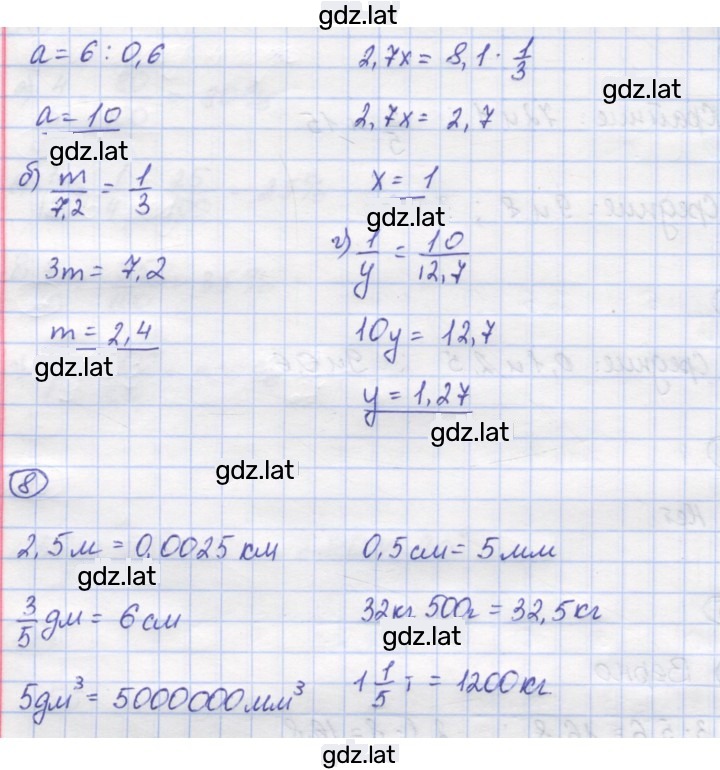 gdz.lat
a = 6 : 0,6
a = 10
gdz.lat
б) m/7,2 = 1/3
3m = 7,2
m = 2,4
gdz.lat
2,7x = 8,1 · 1/3
gdz.lat
2,7x = 2,7
x = 1
gdz.lat
г) 1/y = 10/12,7
10y = 12,7
y = 1,27
gdz.lat
gdz.lat
8
2,5 м = 0,0025 км
gdz.lat
3/5 дм = 6 см
5 дм³ = 5000000 мм³
0,5 см = 5 мм
32 кг 500 г = 32,5 кг
gdz.lat
1 1/5 т = 1200 кг
gdz.lat